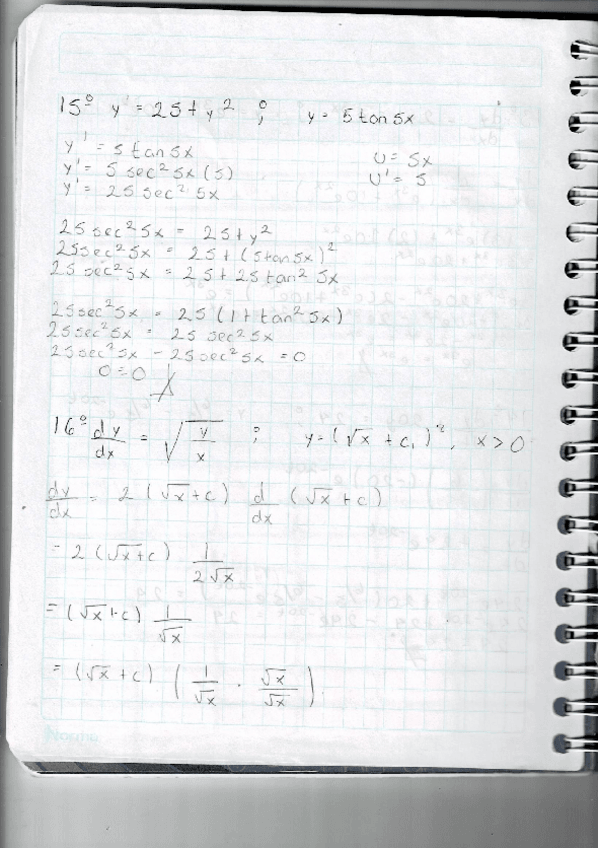 15º y' = 25 + y² ; y = 5 tan 5x
y' = 5 tan 5x u = 5x
y' = 5 sec² 5x (5) u' = 5
y' = 25 sec² 5x
25 sec² 5x = 25 + y²
25 sec² 5x = 25 + (5 tan 5x)²
25 sec² 5x = 25 + 25 tan² 5x
25 sec² 5x = 25 (1 + tan² 5x)
25 sec² 5x = 25 sec² 5x
25 sec² 5x - 25 sec² 5x = 0
0 = 0
16º dy/dx = √(y/x) ; y = (√x + c₁)², x > 0
dy/dx = 2 (√x + c) d/dx (√x + c)
= 2 (√x + c) 1/(2√x)
= (√x + c) 1/√x
= (√x + c) (1/√x · √x/√x)
Norma